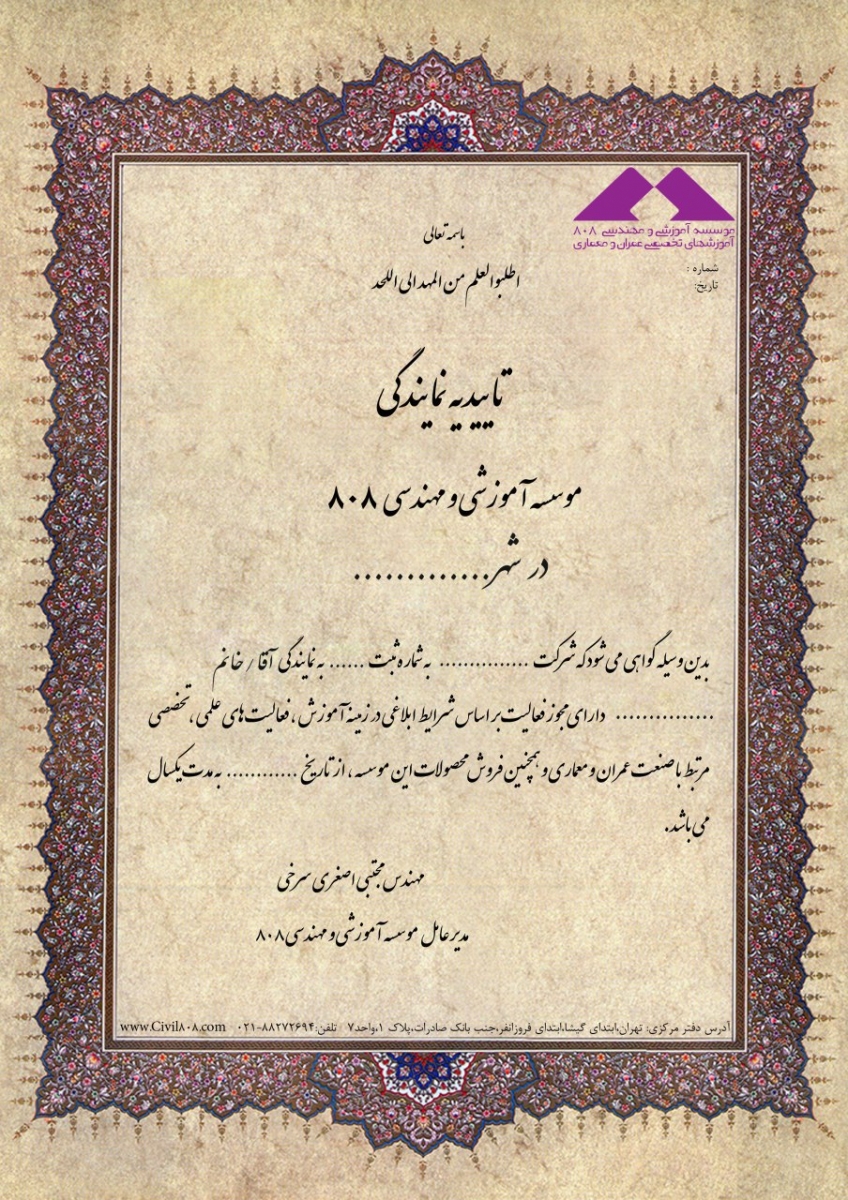 موسسه آموزشی و مهندسی ۸۰۸
آموزشهای تخصصی عمران و معماری
باسمه تعالی
شماره :
اطلبوالعلم من المهد الی اللحد
تاریخ:
تاییدیه نمایندگی
موسسه آموزشی و مهندسی ۸۰۸
در شهر.............
بدین وسیله گواهی می شود که شرکت ............... به شماره ثبت ...... به نمایندگی آقا / خانم
............... دارای مجوز فعالیت بر اساس شرایط ابلاغی در زمینه آموزش ، فعالیت های علمی ، تخصصی
مرتبط با صنعت عمران و معماری و همچنین فروش محصولات این موسسه ، از تاریخ ............ به مدت یکسال
می باشد.
مهندس مجتبی اصغری سرخی
مدیر عامل موسسه آموزشی و مهندسی ۸۰۸
آدرس دفتر مرکزی: تهران،ابتدای گیشا،ابتدای فروزانفر،جنب بانک صادرات،پلاک ۱،واحد۷ تلفن:۸۸۲۷۲۶۹۴-۰۲۱ www.Civil۸۰۸.com